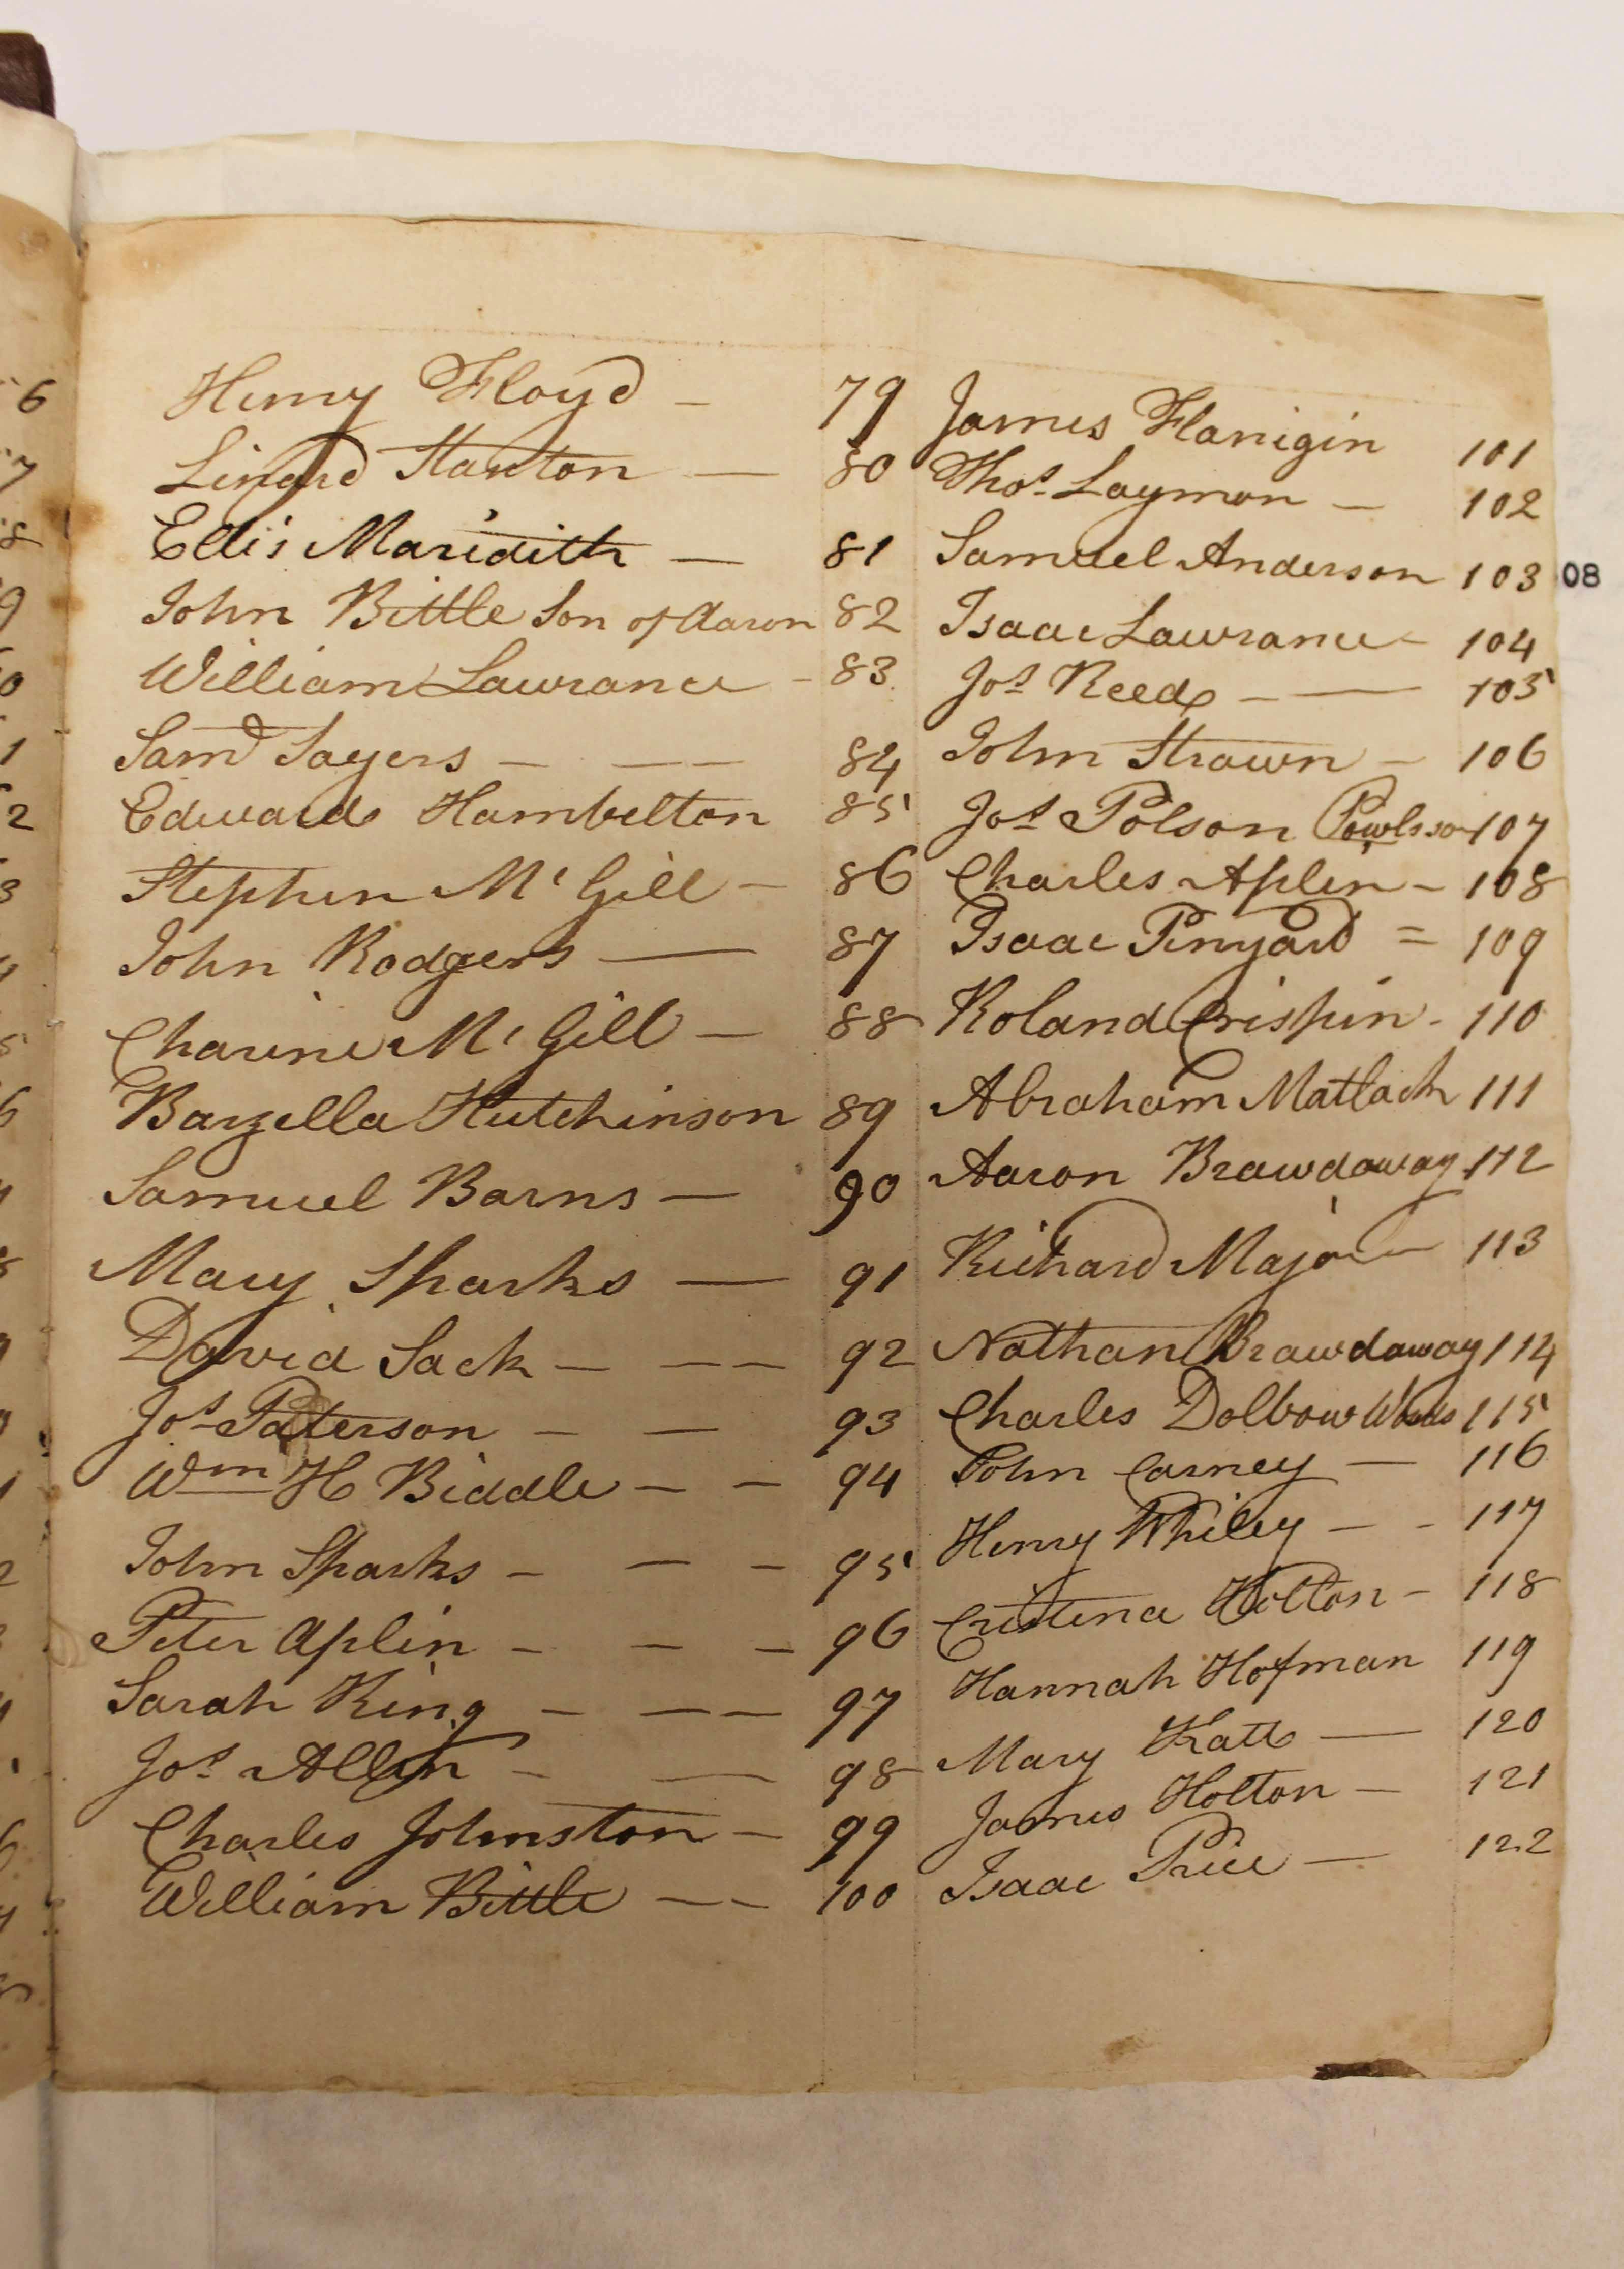 Henry Floyd - 79
Linard Stanton — 80
Ellis Maridith — 81
John Bittle Son of Aaron 82
William Lawrance - 83
Saml Sayers - — — 84
Edwards Hambelton 85
Stephen Mc Gill - 86
John Rodgers — 87
Mc Gill — 88
Barzella Hutchinson 89
Samuel Barns — 90
Mary Sparks — 91
David Sack — — — 92
Jos Paterson — — 93
Wm H Biddle — — 94
John Sparks - — - 95
Peter Aplin - — — 96
Sarah King - — — 97
Jos Allen - — 98
Charles Johnston — 99
William Bittle — — 100
James Flanigin 101
Thos Laymon — 102
Samuel Anderson 103
Isaac Lawrance - 104
Jos Reed - — 105
John Strawn - 106
Jos Polson Powlsson 107
Charles Aplin - 108
Isaac Pinyard = 109
Roland Crispin - 110
Abraham Matlack 111
Aaron Brawdaway 112
Richard Major — 113
Nathan Brawdaway 114
Charles Dolbow Woods 115
John Carney — 116
Henry Whiley — - 117
Cristena Holton - 118
Hannah Hofman 119
Mary Katts — 120
James Holton — 121
Isaac Price — 122
08
6
7
8
9
0
1
2
3